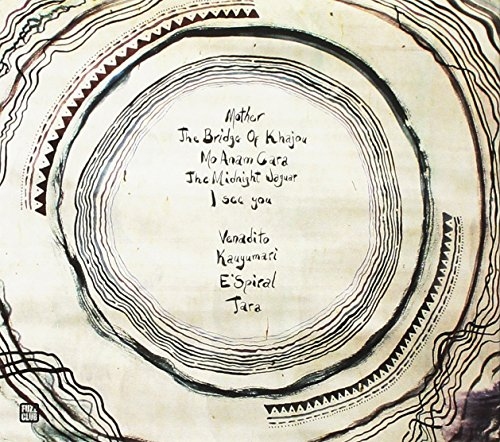 Mother
The Bridge Of Khajou
Mo Anam Cara
The Midnight Jaguar
I see you
Venadito
Kauyumari
E'Spiral
Tara
FUZZ
CLUB